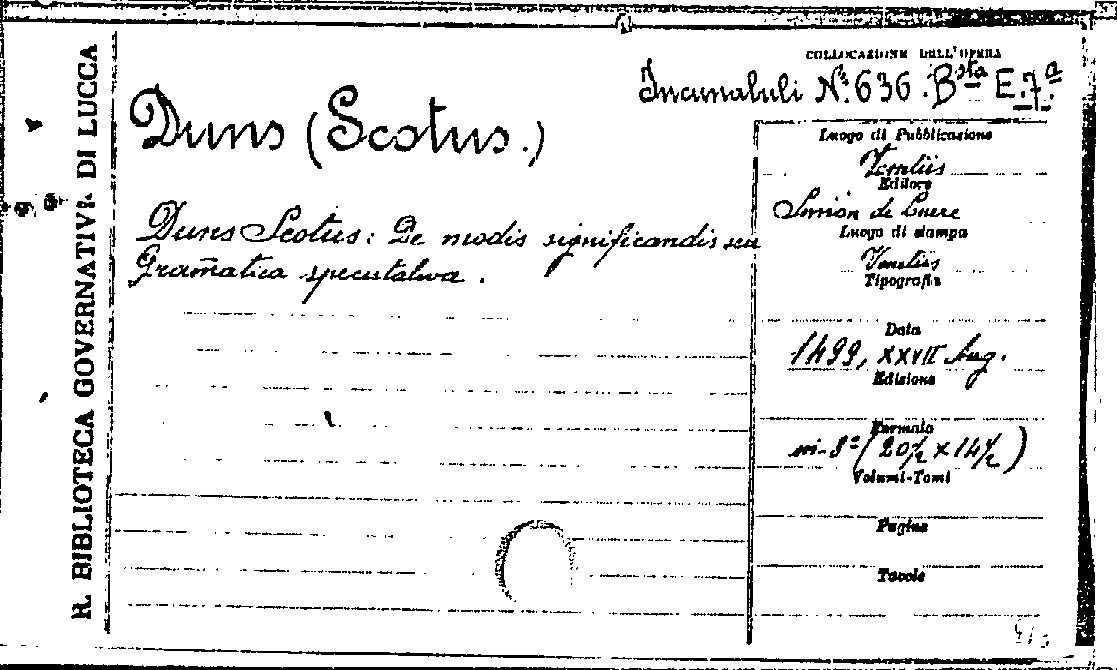 R. BIBLIOTECA GOVERNATIVA DI LUCCA
COLLOCAZIONE DELL'OPERA
Incunabuli N.º 636. Bsta E.7ª
Duns (Scotus.)
Duns Scotus: De modis significandis seu
Gram̃atica speculativa.
Luogo di Pubblicazione
Venetiis
Editore
Simon de Luere
Luogo di stampa
Venetiis
Tipografia
Data
1499, XXVII Aug.
Edizione
Formato
in-8º (20½ x 14½)
Volumi-Tomi
Pagine
Tavole